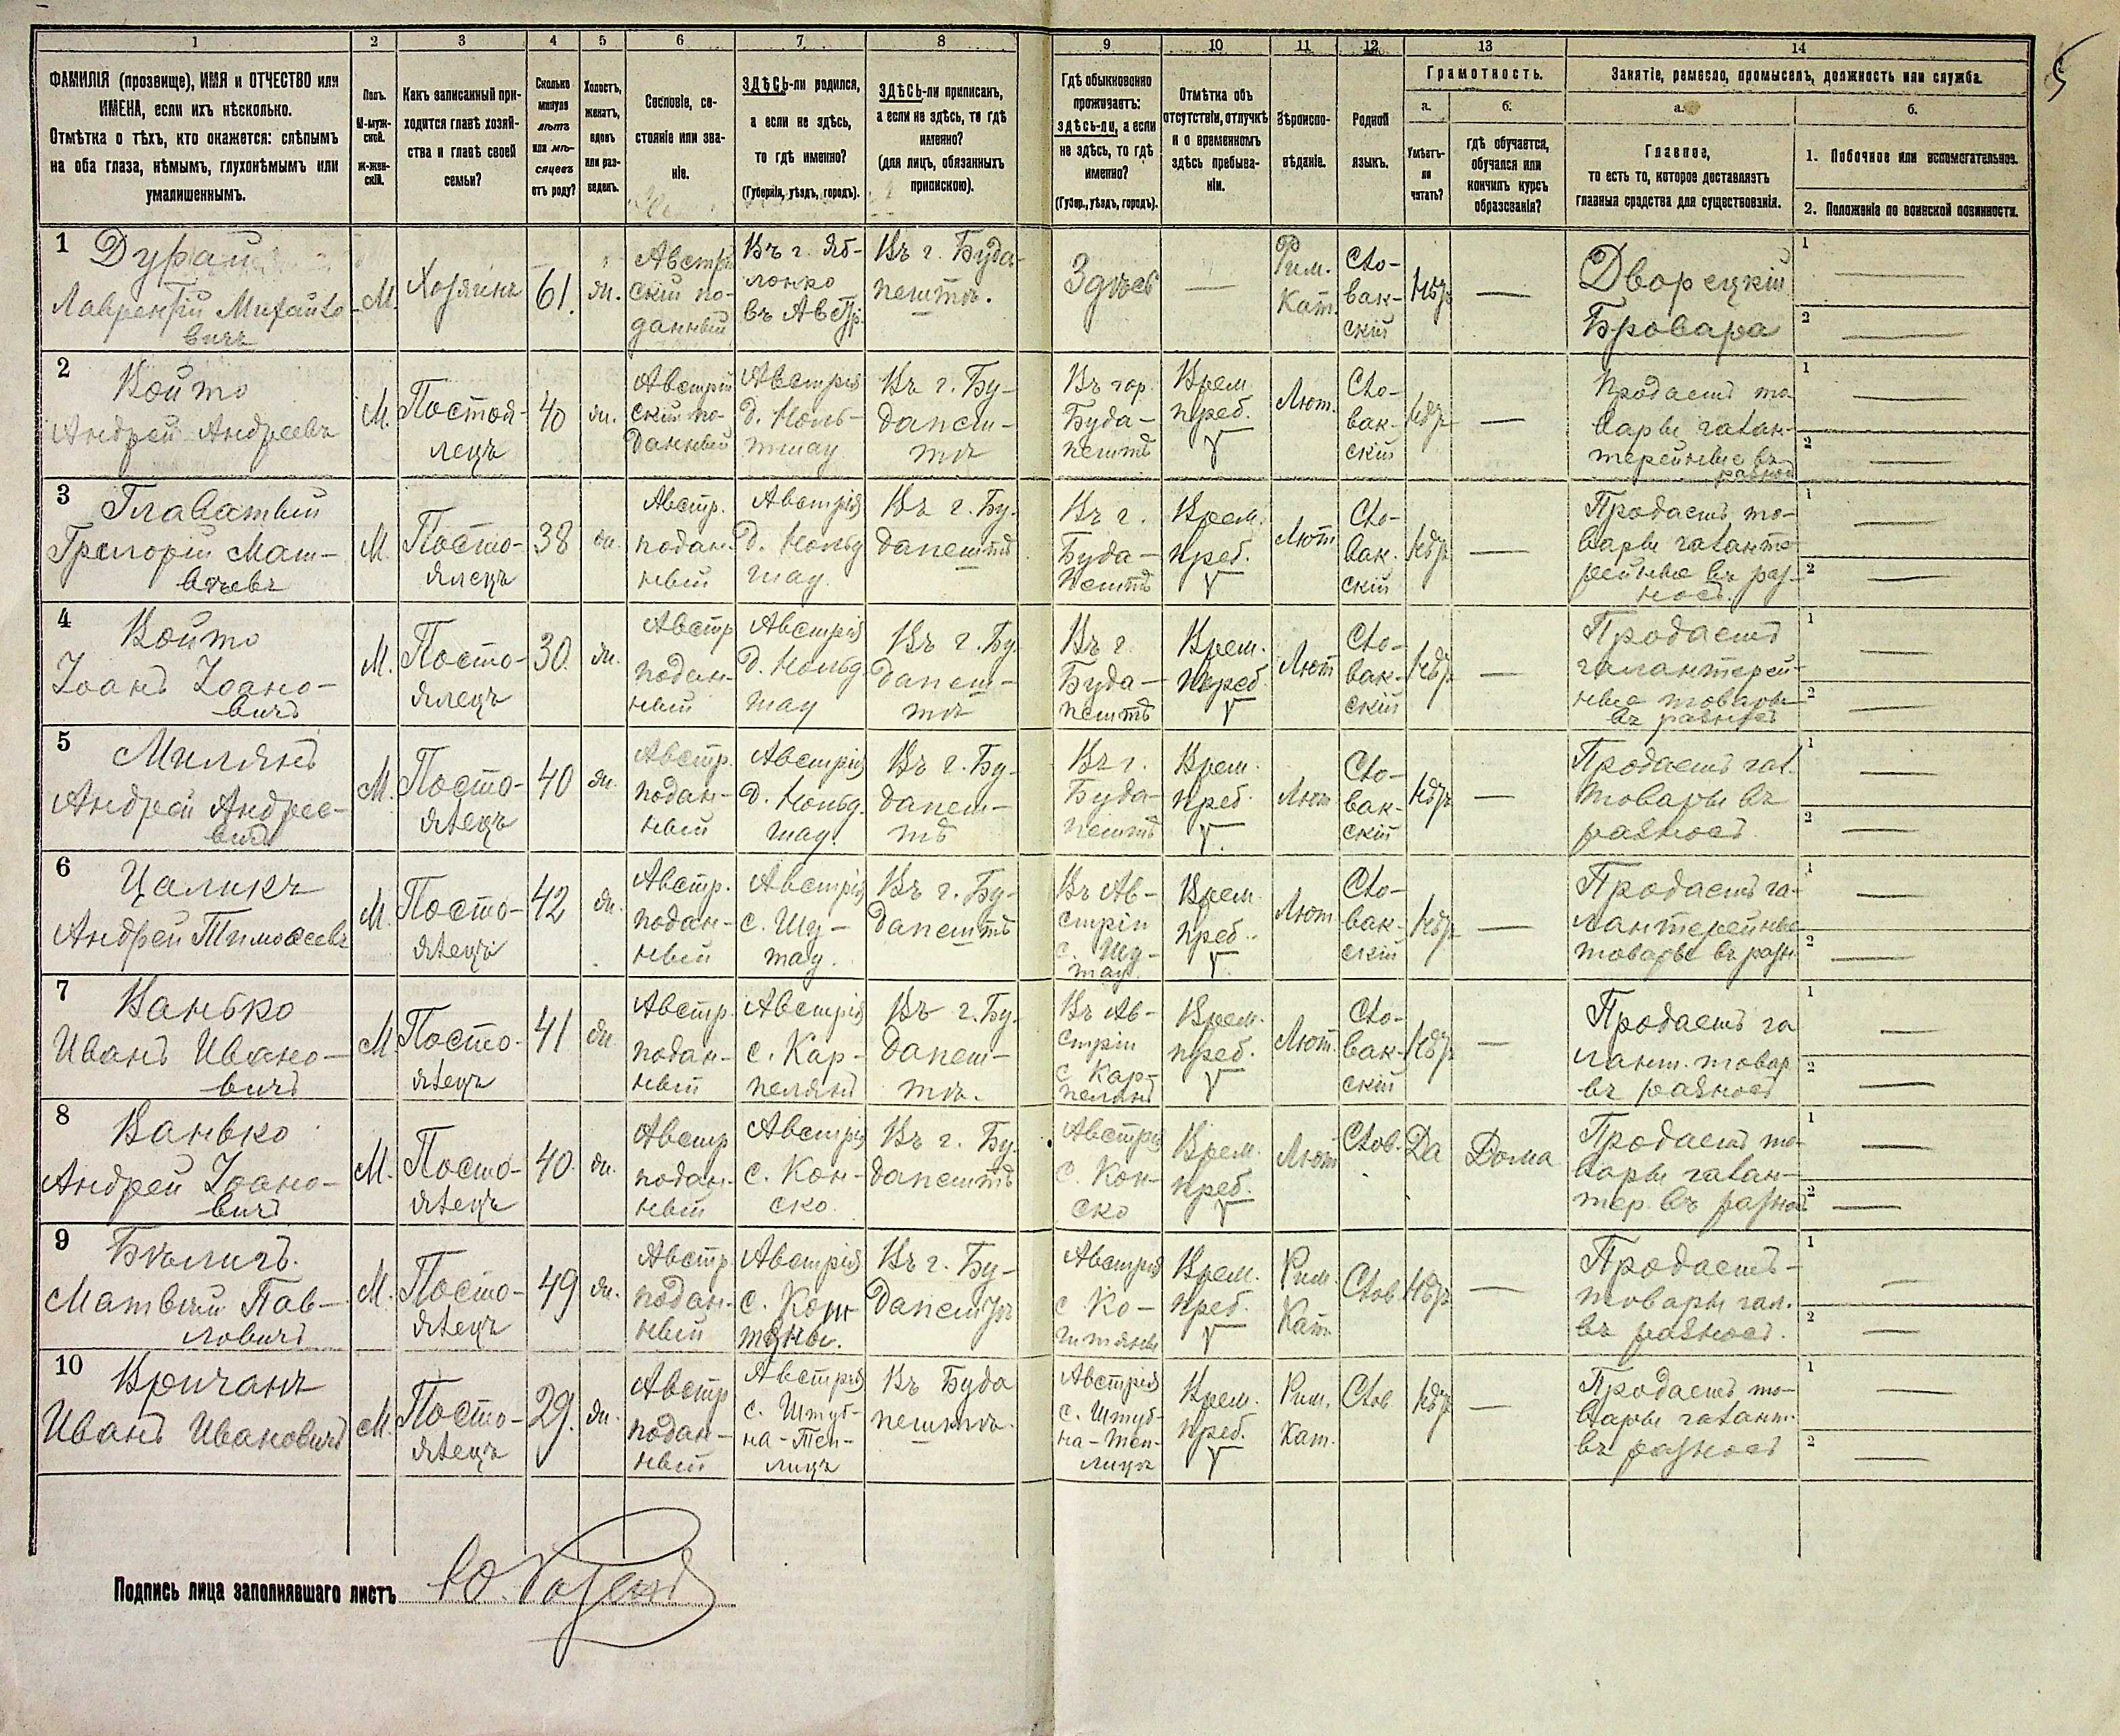 5
1 2 3 4 5 6 7 8 9 10 11 12 13 14
ФАМИЛІЯ (прозвище), ИМЯ и ОТЧЕСТВО или
ИМЕНА, если ихъ нѣсколько.
Отмѣтка о тѣхъ, кто окажется: слѣпымъ
на оба глаза, нѣмымъ, глухонѣмымъ или
умалишеннымъ.
Полъ.
М-муж-
ской.
Ж-жен-
скій.
Какъ записанный при-
ходится главѣ хозяй-
ства и главѣ своей
семьи?
Сколько
минуло
лѣтъ
или мѣ-
сяцевъ
отъ роду?
Холостъ,
женатъ,
вдовъ
или раз-
веденъ.
Сословіе, со-
стояніе или зва-
ніе.
ЗДѢСЬ-ли родился,
а если не здѣсь,
то гдѣ именно?
(Губернія, уѣздъ, городъ).
ЗДѢСЬ-ли приписанъ,
а если не здѣсь, то гдѣ
именно?
(для лицъ, обязанныхъ
припискою).
Гдѣ обыкновенно
проживаетъ:
здѣсь-ли, а если
не здѣсь, то гдѣ
именно?
(Губер., уѣздъ, городъ).
Отмѣтка объ
отсутствіи, отлучкѣ
и о временномъ
здѣсь пребыва-
ніи.
Вѣроиспо-
вѣданіе.
Родной
языкъ.
Грамотность.
а.
Умѣетъ-
ли
читать?
б.
гдѣ обучается,
обучался или
кончилъ курсъ
образованія?
Занятіе, ремесло, промыселъ, должность или служба.
а.
Главное,
то есть то, которое доставляетъ
главныя средства для существованія.
б.
1. Побочное или вспомогательное.
2. Положеніе по воинской повинности.
1
Лаврентій Михайло-
вичъ
М.
Хозяинъ
61.
жн.
Австрій
скій по-
данный
Въ г. Яб-
лонко
въ Австр.
Въ г. Буда-
пештѣ.
Здѣсь
—
Рим.
Кат.
Сло-
вак-
скій
Нѣтъ
—
Дворецкій
1 —
2 —
2
Войто
Андрей Андреевъ
М.
Постоя-
лецъ
40
жн.
Австрій
скій по-
данный
Австрія
Въ г. Бу-
дапеш-
тѣ
Въ гор.
Буда-
пештѣ
Врем.
преб.
Лют.
Сло-
вак-
скій
Нѣтъ
—
Продаетъ то
вары галан-
терейные въ
разносъ
1 —
2 —
3
Главатый
Григорій Мат-
вѣевъ
М.
Посто-
ялецъ
38
жн.
Австр.
подан-
ный
Австрія
Въ г. Бу-
дапештѣ
Въ г.
Буда-
пештѣ
Врем.
преб.
Лют
Сло-
вак-
скій
Нѣтъ
—
Продаетъ то-
вары галанте-
рейные въ раз-
носъ.
1 —
2 —
4
Войто
Іоанъ Іоано-
вичъ
М.
Посто-
ялецъ
30.
жн.
Австр
подан-
ный
Австрія
Въ г. Бу-
дапеш-
тѣ
Въ г.
Буда-
пештѣ
Врем.
преб
Лют
Сло-
вак-
скій
Нѣтъ
—
Продаетъ
галантерей-
ные товары
въ разносъ
1 —
2 —
5
Милянъ
Андрей Андрее-
вичъ
М.
Посто-
ялецъ
40
жн.
Австр.
подан-
ный
Австрія
Въ г. Бу-
дапеш-
тѣ
Въ г.
Буда-
пештѣ
Врем.
преб.
Лют
Сло-
вак-
скій
Нѣтъ
—
Продаетъ гал.
товары въ
разносъ.
1 —
2 —
6
Цаликъ
Андрей Тимоѳеевъ
М.
Посто-
ялецъ
42
жн.
Австр.
подан-
ный
Австрія
с. Шу-
тау.
Въ г. Бу-
дапештѣ
Въ Ав-
стріи
с. Шу-
тау
Врем.
преб.
Лют
Сло-
вак-
скій
Нѣтъ
—
Продаетъ га-
лантерейные
товары въ разн.
1 —
2 —
7
Ванько
Иванъ Ивано-
вичъ
М.
Посто-
ялецъ
41
жн
Австр.
подан-
ный
Австрія
с. Кар-
пелянъ
Въ г. Бу-
дапеш-
тѣ.
Въ Ав-
стріи
с Кар-
пелянъ
Врем.
преб.
Лют.
Сло-
вак-
скій
Нѣтъ
—
Продаетъ га
лант. товар
въ разносъ
1 —
2 —
8
Ванько
Андрей Іоано-
вичъ
М.
Посто-
ялецъ
40.
жн.
Австр
подан-
ный
Австрія
с. Кон-
ско.
Въ г. Бу-
дапештѣ
Австрія
с. Кон-
ско
Врем.
преб.
Лют
Слов.
Да
Дома
Продаетъ то-
вары галан-
тер. въ разносъ
1 —
2 —
9
Бѣличъ.
Матвѣй Пав-
ловичъ
М.
Посто-
ялецъ
49
жн.
Австр
подан-
ный
Австрія
Въ г. Бу-
дапештѣ
Австрія
с Ко-
штяны
Врем.
преб.
Рим.
Кат.
Слов
Нѣтъ
—
Продаетъ-
товары гал.
въ разносъ.
1 —
2 —
10
Вричанъ
Иванъ Ивановичъ
М.
Посто-
ялецъ
29.
жн.
Австр
подан-
ный
Австрія
с. Штуб-
на-Теп-
лицъ
Въ Буда
пештѣ.
Австрія
с. Штуб-
на-Теп-
лицъ
Врем.
преб.
Рим.
Кат.
Слов
Нѣтъ
—
Продаетъ то-
вары галант.
въ разносъ
1 —
2 —
Подпись лица заполнявшаго листъ